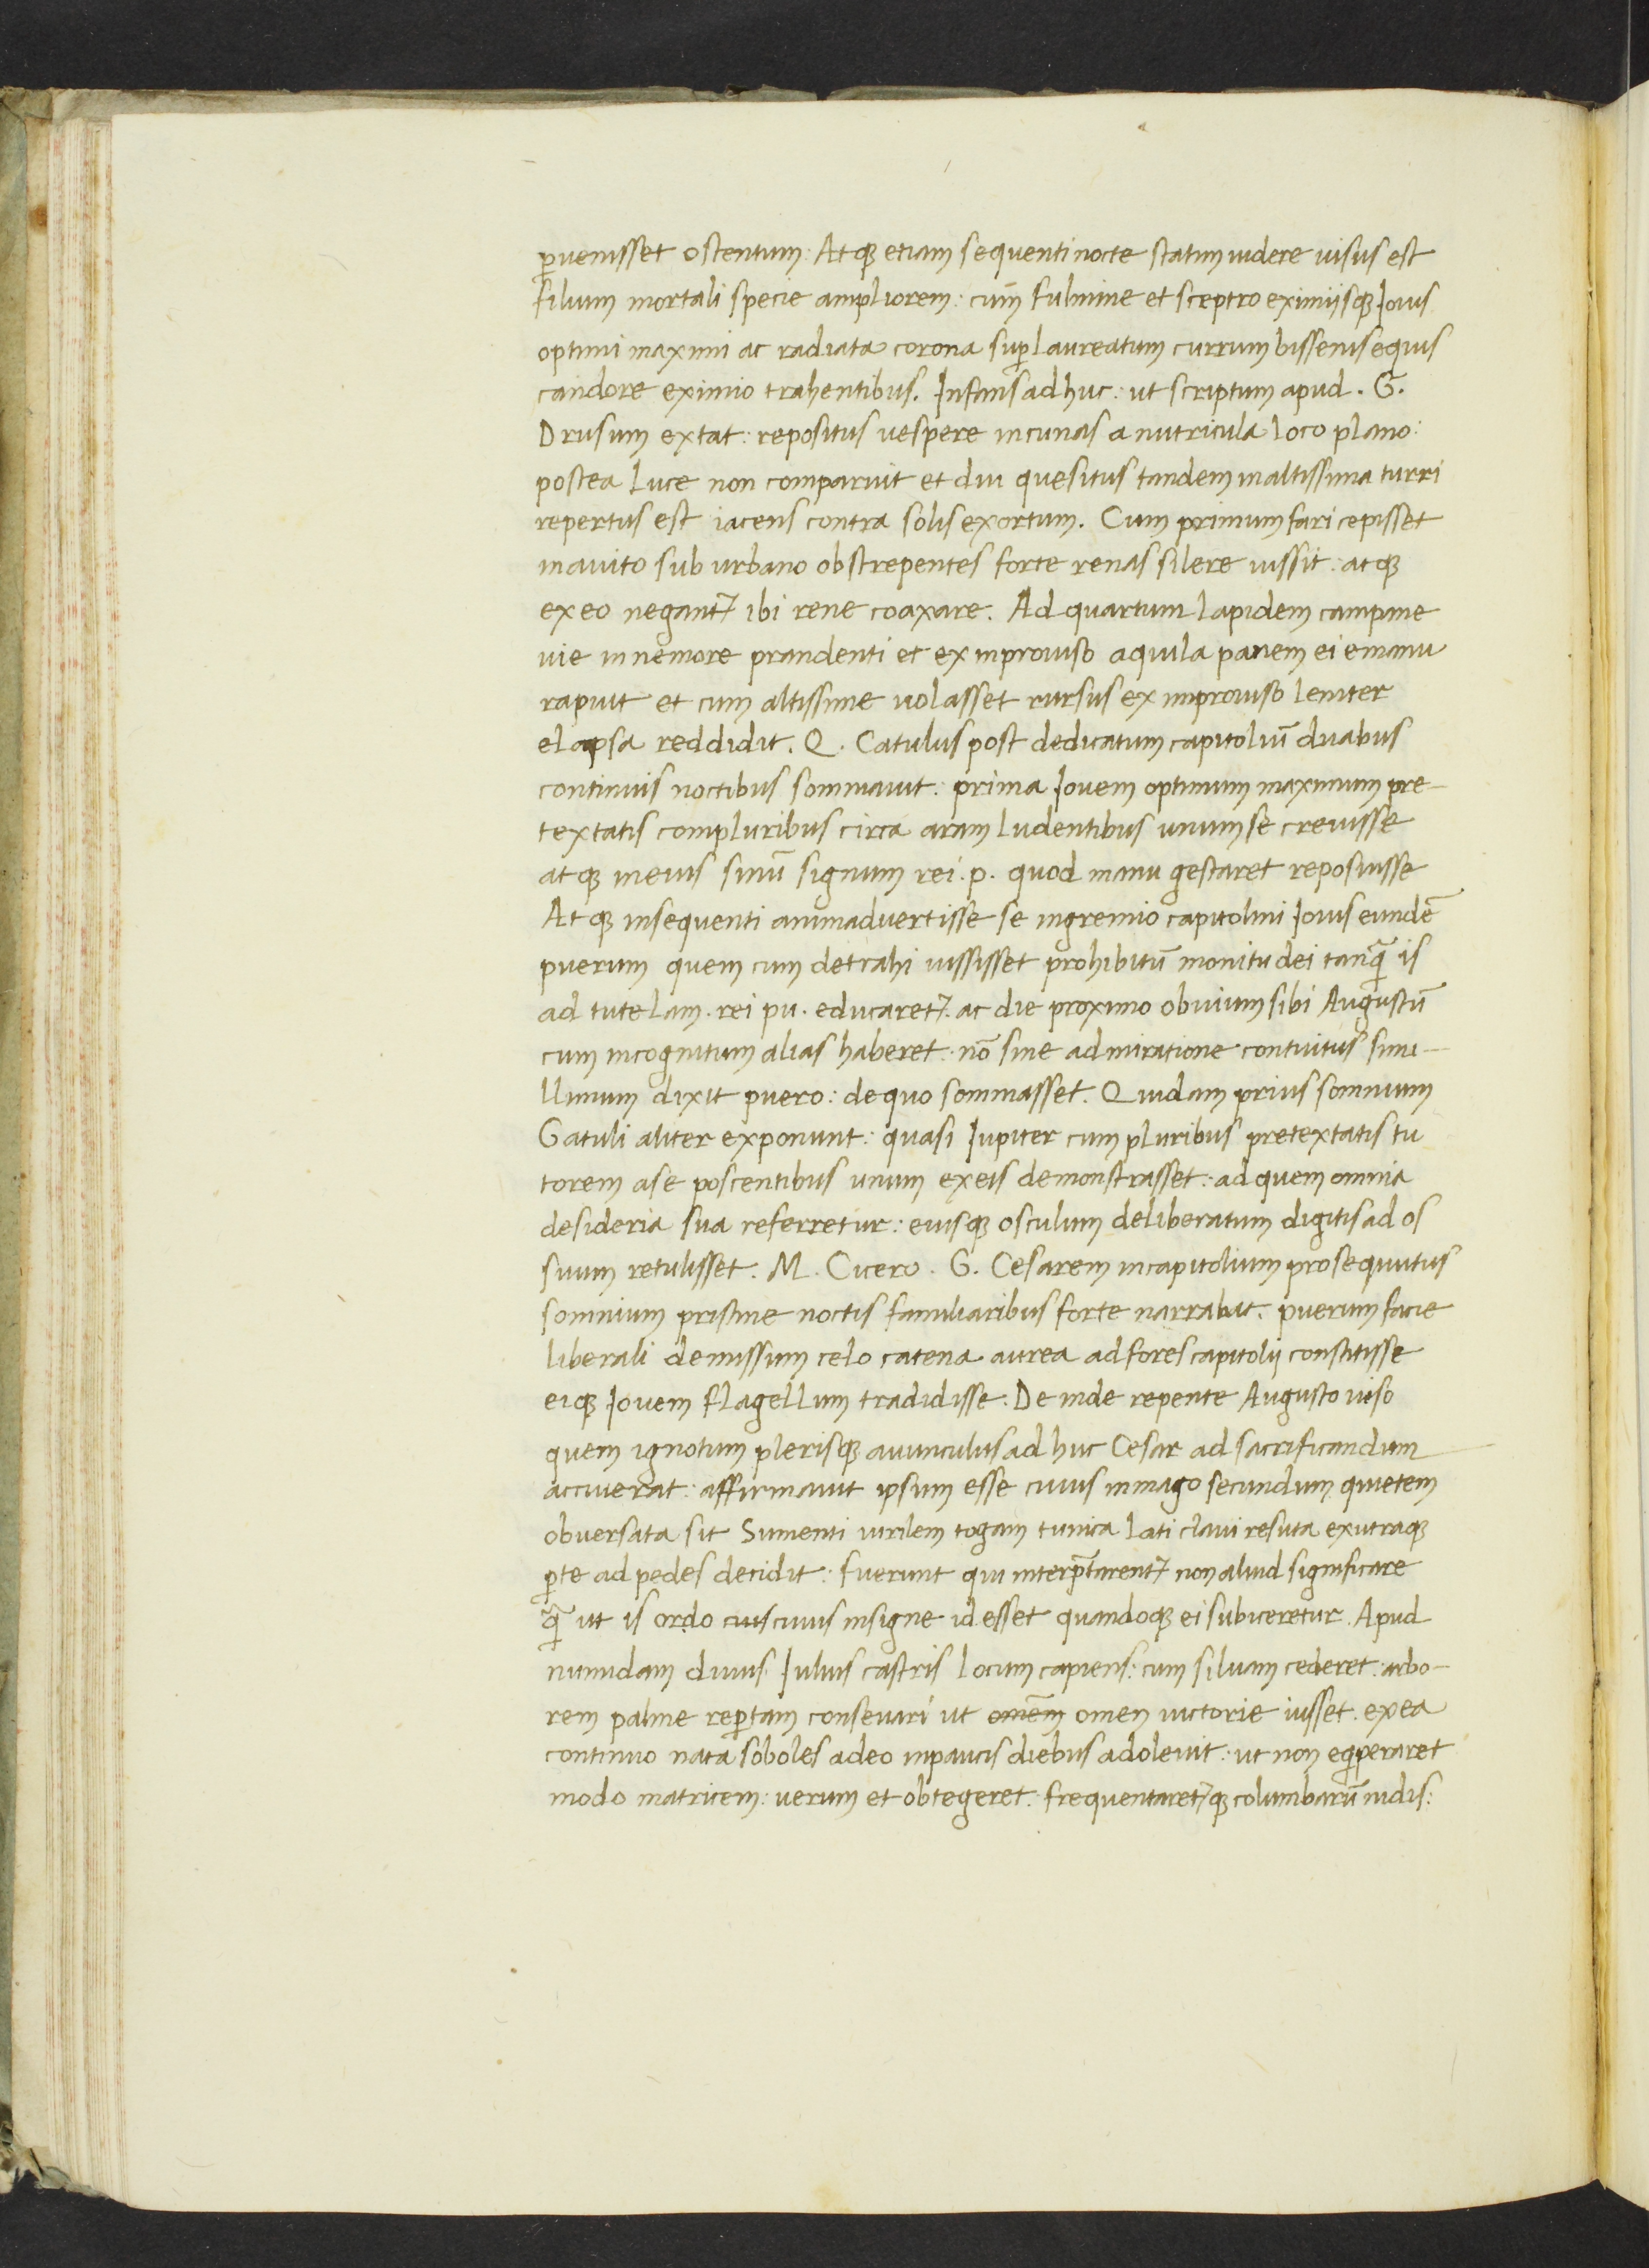 ꝑuenisset ostentum: Atqꝫ etiam sequenti nocte statim uidere uisus est
filium mortali specie ampliorem: cum̄ fulmine et sceptro eximijsqꝫ Iouis
optimi maximi ac radiata corona suꝑ laureatum currum bissenis equis
candore eximio trahentibus. Infans ad huc: ut scriptum apud. G.
Drusum extat: repositus uespere in cunas a nutricula loco plano:
postea luce non comparuit et diu quesitus tandem in altissima turri
repertus est iacens contra solis exortum. Cum primum fari cepisset
in auito sub urbano obstrepentes forte renas silere iussit: atqꝫ
ex eo negant᷑ ibi rene coaxare. Ad quartum lapidem campane
uie in nemore prandenti et ex inprouiso aquila panem ei emanu
rapuit et cum altissime uolasset rursus ex improuiso leniter
elapsa reddidit. Q. Catulus post dedicatum capitoliū duabus
continuis noctibus somniauit: prima Iouem optimum maximum pre-
textatis compluribus circa aram ludentibus unum se creuisse
atqꝫ in eius sinū signum rei. p. quod manu gestaret reposuisse
Atqꝫ insequenti animaduertisse se in gremio capitolini Iouis eundē
puerum quem cum detrahi iussisset prohibitū monitu dei tanq̄ is
ad tutelam. rei pu. educaret᷑. ac die proximo obuium sibi Augustū
cum incognitum alias haberet: nō sine admiratione contuitus simi-
llimum dixit puero: de quo somniasset. Quidam prius somnium
Gatuli aliter exponunt: quasi Iupiter cum pluribus pretextatis tu
torem a se poscentibus unum ex eis demonstrasset: ad quem omnia
desideria sua referretur: eiusqꝫ osculum deliberatum digitis ad os
suum retulisset. M. Cicero. G. Cesarem in capitolium prosequutus
somnium pristine noctis familiaribus forte narrabit: puerum facie
liberali demissum celo catena aurea ad fores capitolij constitisse
eiqꝫ Iouem flagellum tradidisse. De inde repente Augusto uiso
quem ignotum plerisqꝫ auunculus ad huc Cesar ad sacrificandum
acciuerat: affirmauit ipsum esse cuius inmago secundum quietem
obuersata sit Sumenti uirilem togam tunica lati claui resuta ex utraqꝫ
ꝑte ad pedes decidit: fuerunt qui interp̄tarent᷑ non aliud significare
q̄ ut is ordo cuius cuius insigne id esset quandoqꝫ ei subiceretur. Apud
numidam diuus Iulius castris locum capiens: cum siluam cederet: arbo-
rem palme reꝑtam conseuari ut omēm omen uictorie iusset. ex ea
continuo nata soboles adeo in paucis diebus adoleuit: ut non eqꝑeraret
modo matricem: uerum et obtegeret: frequentaret᷑qꝫ columbarū nidis: